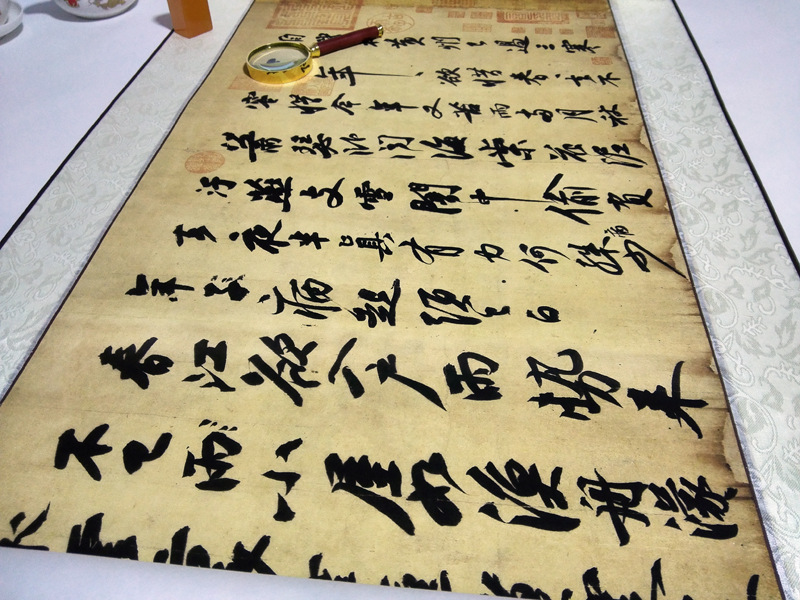 自 黃州已過三寒
年〻欲惜春春去不
容惜今年又苦雨兩月秋
蕭瑟卧聞海棠花泥
汙燕支雪闇中偷負
去夜半真有力何殊病少
年子病起頭已白
春江欲入戶雨勢來
不已雨小屋如漁舟濛